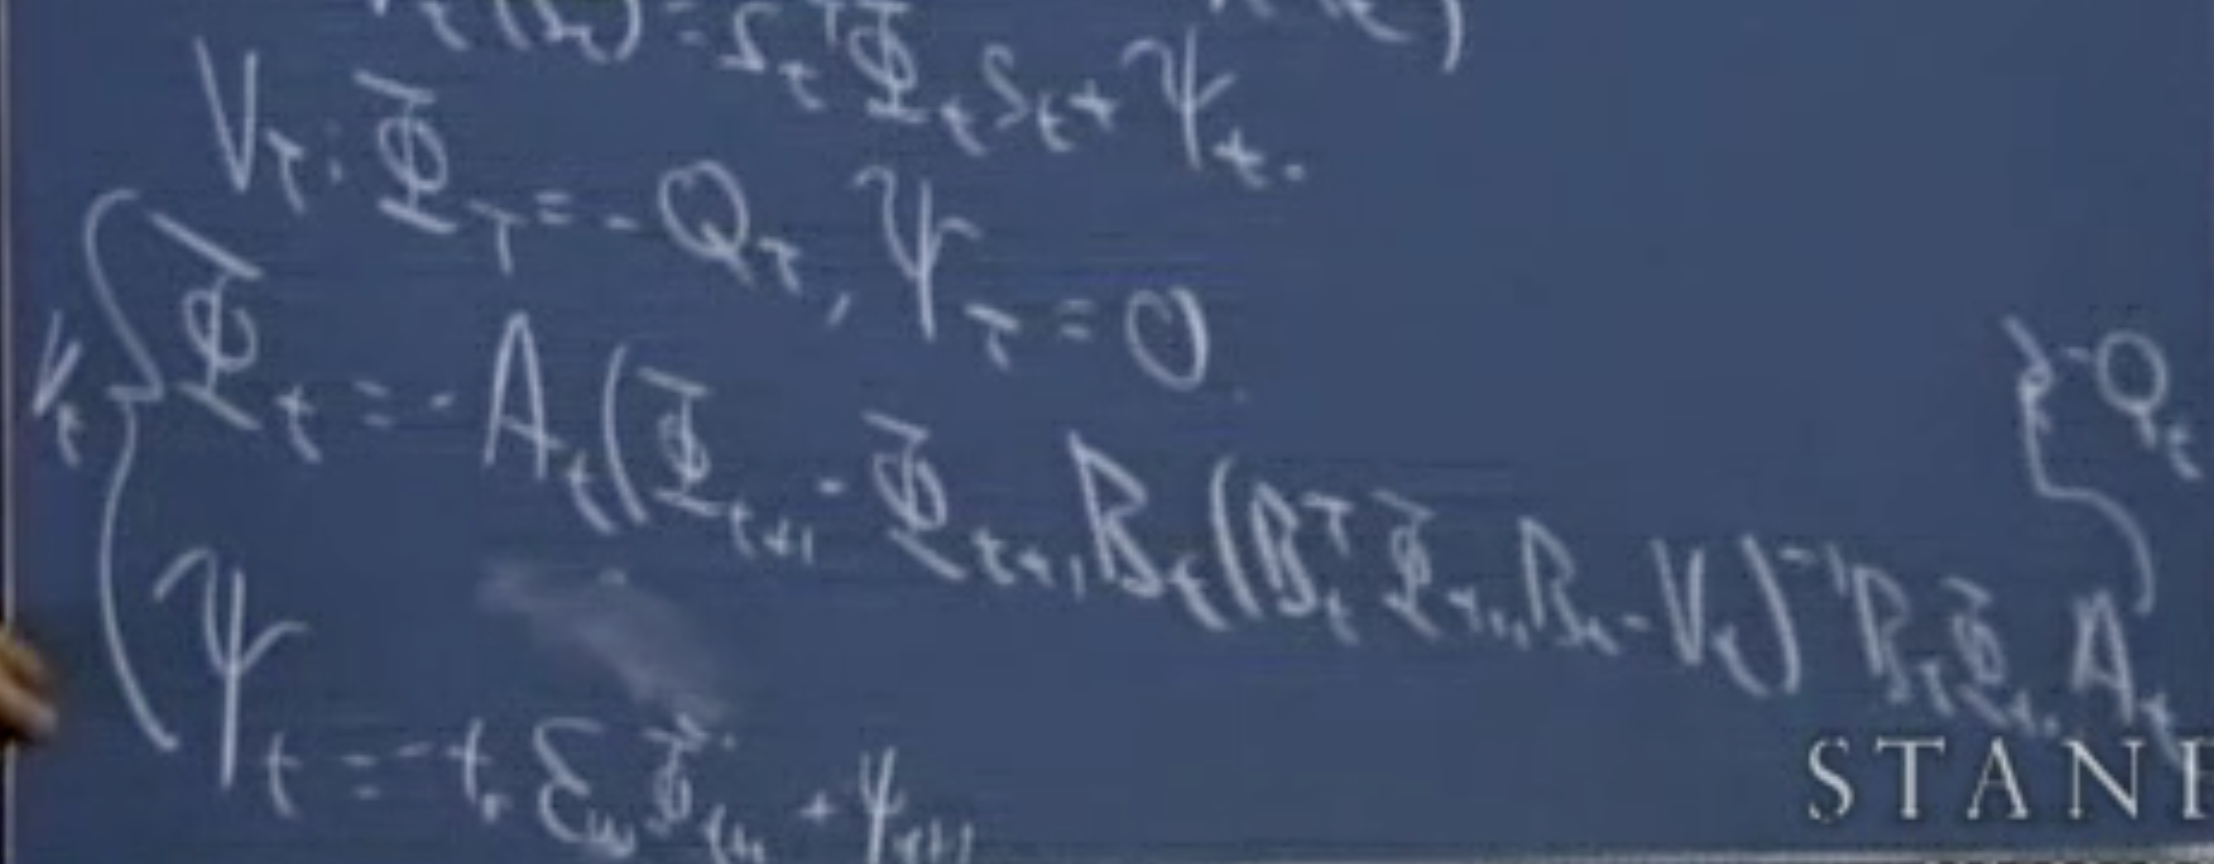 V_t(S_t) = S_t^T Φ_t S_t + Ψ_t.
V_T: Φ_T = -Q_T, Ψ_T = 0.
V_t { Φ_t = -A_t(Φ_{t+1} - Φ_{t+1} B_t (B_t^T Φ_{t+1} B_t - V_t)^{-1} B_t Φ_{t+1} A_t - Q_t
Ψ_t = -tr Σ_w Φ_{t+1} + Ψ_{t+1}
STANF